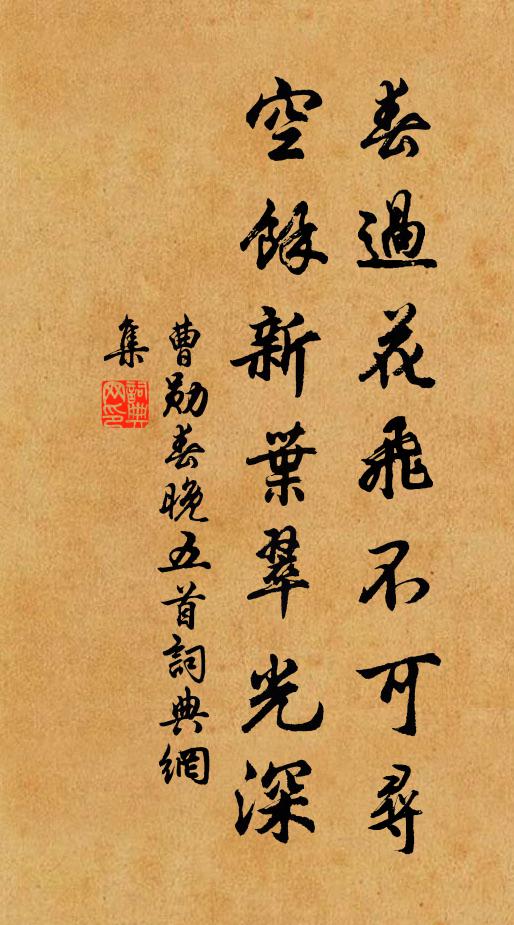 春過花飛不可尋
空餘新葉翠光深
曹勛春晚五首詞典網
集
詞典
网印